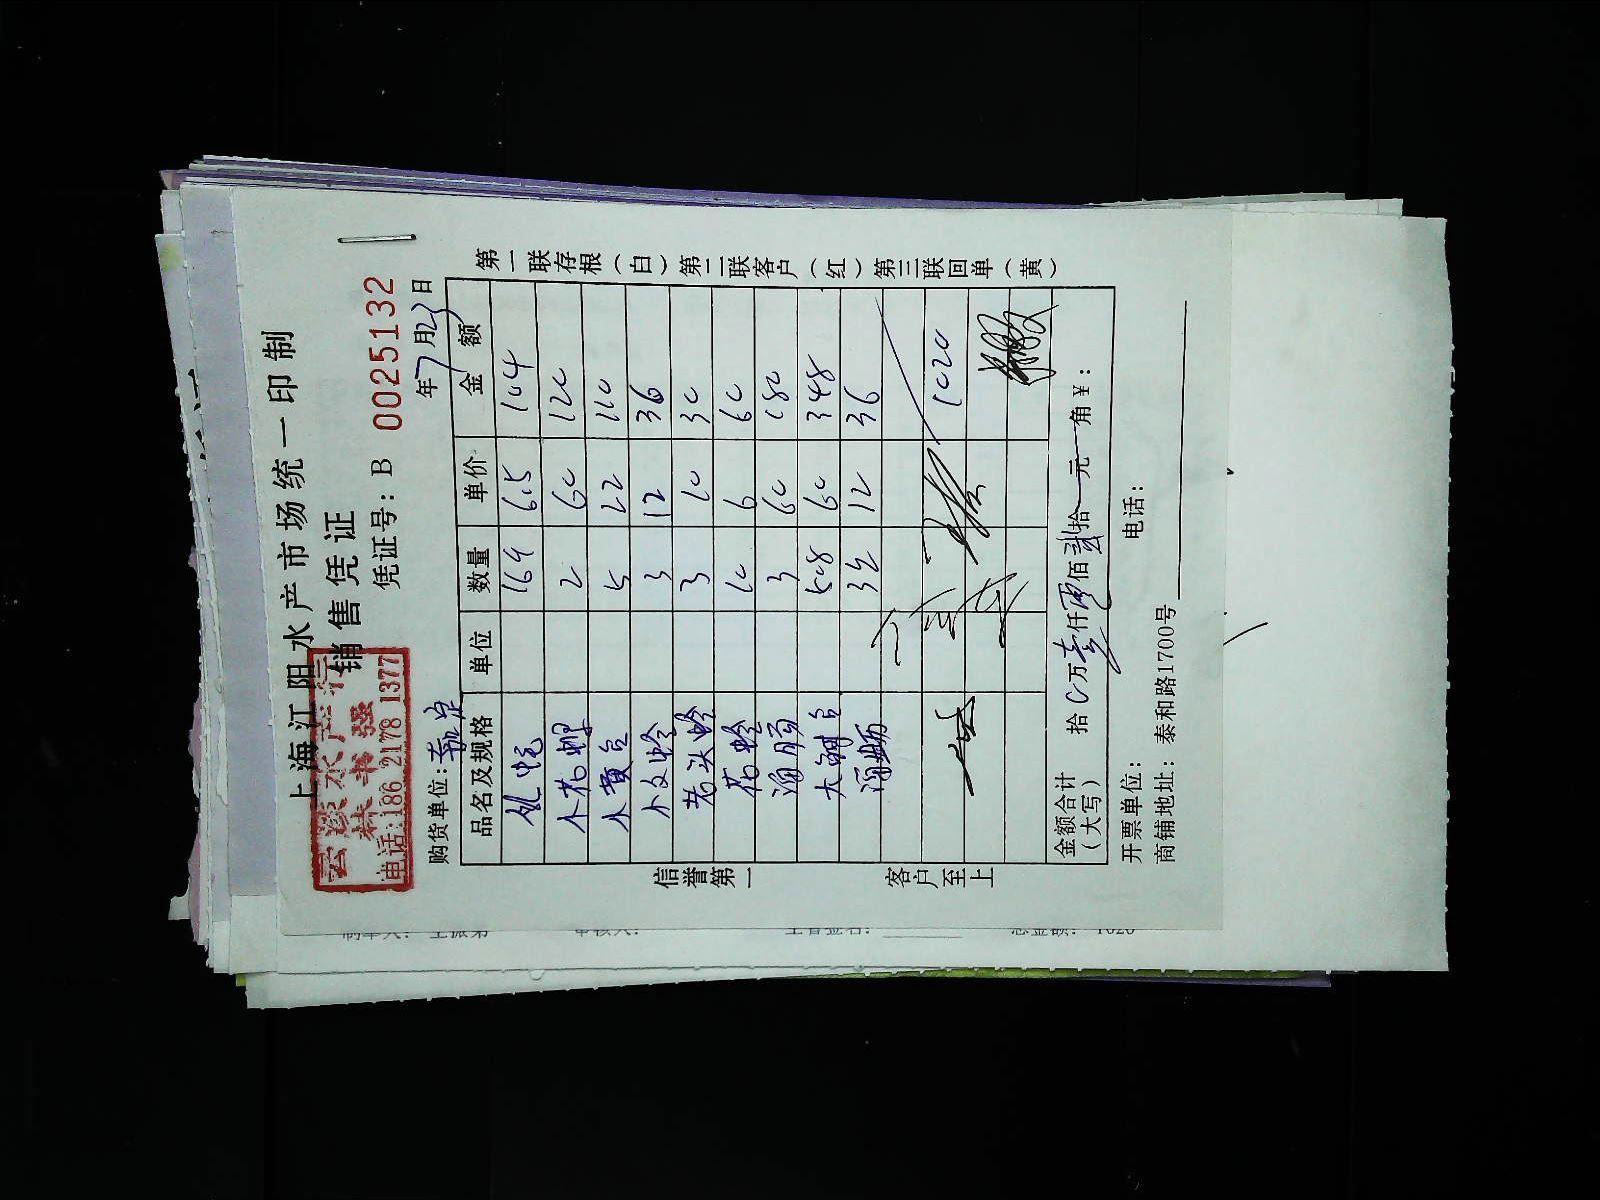 上海江阳水产市场统一印制
销售凭证
云溪水产行
林书强
电话:186 2178 1377
凭证号: B 0025132
年7月23日
购货单位:
品名及规格 单位 数量 单价 金额
蛏 164 6.5 104
2 60 120
小黄 5 22 110
小文蛤 3 12 36
老头蛤 3 10 30
花蛤 10 6 60
海肠 3 60 180
大 5.8 60 348
海蛎 3 12 36
1020
金额合计(大写) 拾0万壹仟零佰贰拾元 角¥:
开票单位: 电话:
商铺地址: 泰和路1700号
信誉第一 客户至上
第一联存根(白)第二联客户(红)第三联回单(黄)